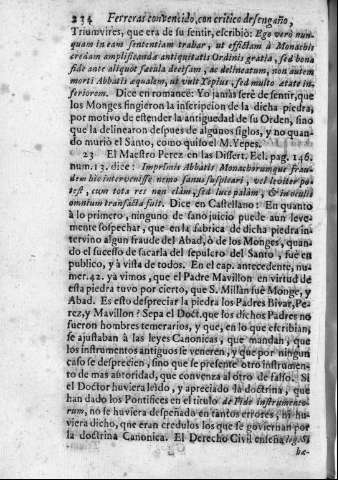 234 Ferreras convencido, con critico desengaño,
Triumvires, que era de su sentir, escribiò: Ego verò nun-
quam in eam sententiam trahar, ut effictam à Monachis
credam amplificandæ antiquitatis Ordinis gratia, sed bona
fide ante aliquot sæcula decisam, ac delineatam, non autem
morti Abbatis æqualem, ut vult Yepius, sed multo ætate in-
feriorem. Dice en romance: Yo jamàs serè de sentir, que
los Monges fingieron la inscripcion de la dicha piedra,
por motivo de estender la antiguedad de su Orden, sino
que la delinearon despues de algunos siglos, y no quan-
do muriò el Santo, como quiso el M. Yepes.
23 El Maestro Perez en las Dissert. Ecl. pag. 146.
num. 13. dice: Imprimis Abbatis, Monachorumque frau-
dem hic intervenisse nemo sanus suspicari, vel leviter po-
test, cum tota res non clàm, sed luce palàm, & in oculis
omnium transacta fuit. Dice en Castellano: En quanto
à lo primero, ninguno de sano juicio puede aun leve-
mente sospechar, que en la fabrica de dicha piedra in-
tervino algun fraude del Abad, ò de los Monges, quan-
do el sucesso de sacarla del sepulcro del Santo, fuè en
publico, y à vista de todos. En el cap. antecedente, nu-
mer. 42. ya vimos, que el Padre Mavillon en virtud de
esta piedra tuvo por cierto, que S. Millàn fuè Monge, y
Abad. Es esto despreciar la piedra los Padres Bivar, Pe-
rez, y Mavillon? Sepa el Doct. que los dichos Padres no
fueron hombres temerarios, y que, en lo que escribian,
se ajustaban à las leyes Canonicas, que mandan, que
los instrumentos antiguos se veneren, y que por ningun
caso se desprecien, sino que se presente otro instrumen-
to de mas autoridad, que convenza al otro de falso. Si
el Doctor huviera leido, y apreciado la doctrina, que
han dado los Pontifices en el titulo de Fide instrumento-
rum, no se huviera despeñado en tantos errores, ni hu-
viera dicho, que eran credulos los que se governan por
la doctrina Canonica. El Derecho Civil enseña leg. Si
ha-